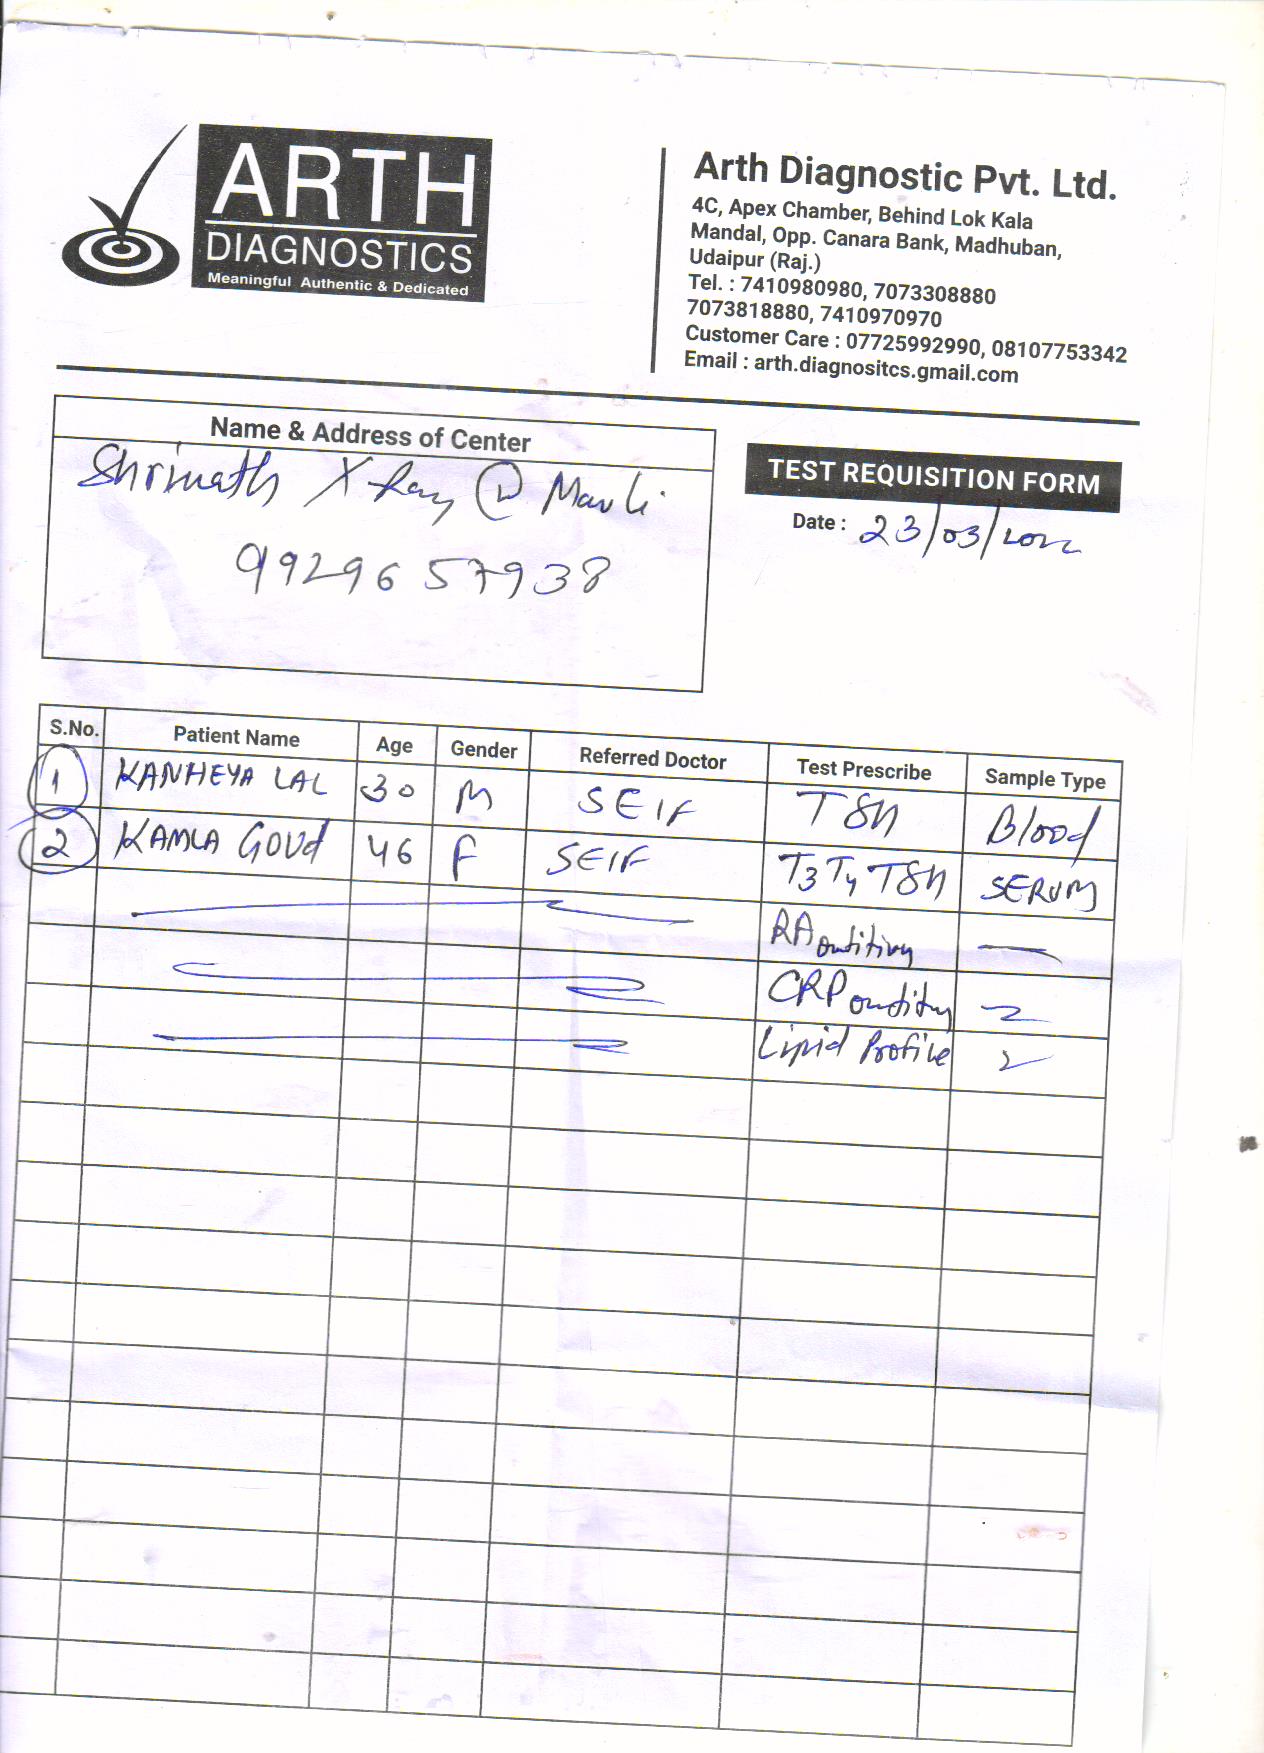 ARTH
DIAGNOSTICS
Meaningful Authentic & Dedicated
Arth Diagnostic Pvt. Ltd.
4C, Apex Chamber, Behind Lok Kala
Mandal, Opp. Canara Bank, Madhuban,
Udaipur (Raj.)
Tel. : 7410980980, 7073308880
7073818880, 7410970970
Customer Care : 07725992990, 08107753342
Email : arth.diagnositcs.gmail.com
Name & Address of Center
Shrinath X-Ray @ Mavli
9929657938
TEST REQUISITION FORM
Date : 23/03/2022
S.No. Patient Name Age Gender Referred Doctor Test Prescribe Sample Type
1 KANHEYA LAL 30 M SEIF TSH Blood
2 KAMLA GOUd 46 F SEIF T3 T4 TSH SERUM
RA
CRP
Lipid Profile